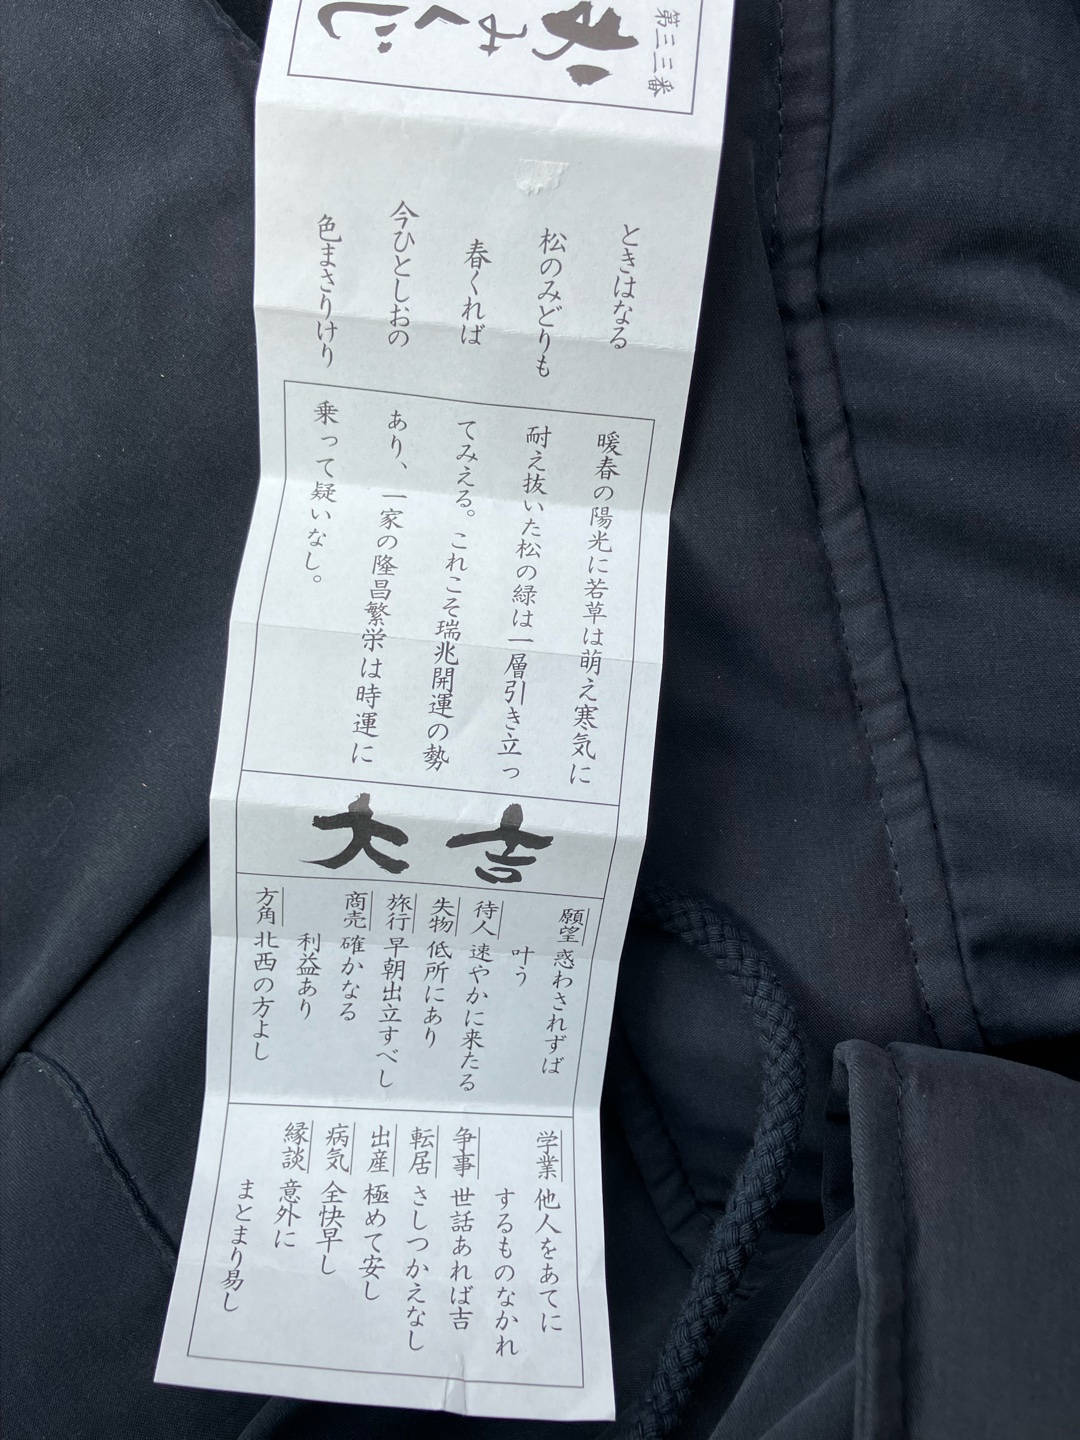 第三三番
おみくじ
ときはなる
松のみどりも
春くれば
今ひとしおの
色まさりけり
暖春の陽光に若草は萌え寒気に
耐え抜いた松の緑は一層引き立っ
てみえる。これこそ瑞兆開運の勢
あり、一家の隆昌繁栄は時運に
乗って疑いなし。
大吉
願望 惑わされずば
叶う
待人 速やかに来たる
失物 低所にあり
旅行 早朝出立すべし
商売 確かなる
利益あり
方角 北西の方よし
学業 他人をあてに
するものなかれ
争事 世話あれば吉
転居 さしつかえなし
出産 極めて安し
病気 全快早し
縁談 意外に
まとまり易し